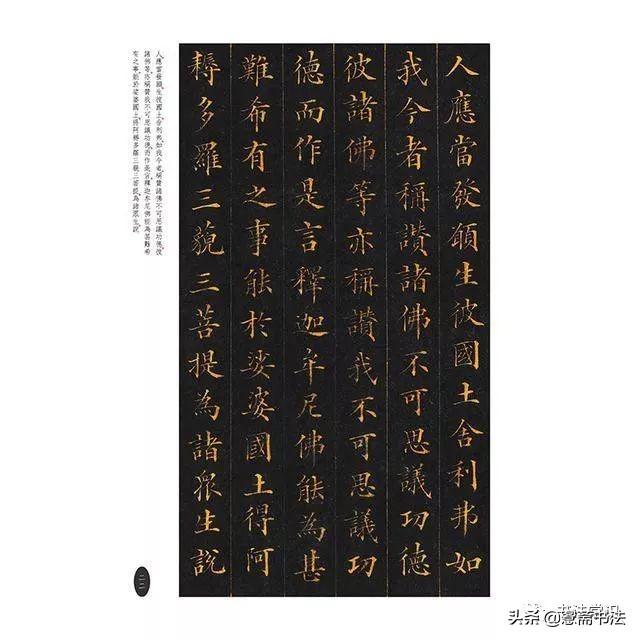 人應當發願生彼國土舍利弗如
我今者稱讚諸佛不可思議功德
彼諸佛等亦稱讚我不可思議功
德而作是言釋迦牟尼佛能為甚
難希有之事能於娑婆國土得阿
耨多羅三藐三菩提為諸眾生說
人應當發願生彼國土舍利弗如我今者稱贊諸佛不可思議功德彼
諸佛等亦稱贊我不可思議功德而作是言釋迦牟尼佛能為甚難希
有之事能於娑婆國土得阿耨多羅三藐三菩提為諸眾生說
二二
书法常识
头条 @慧斋书法